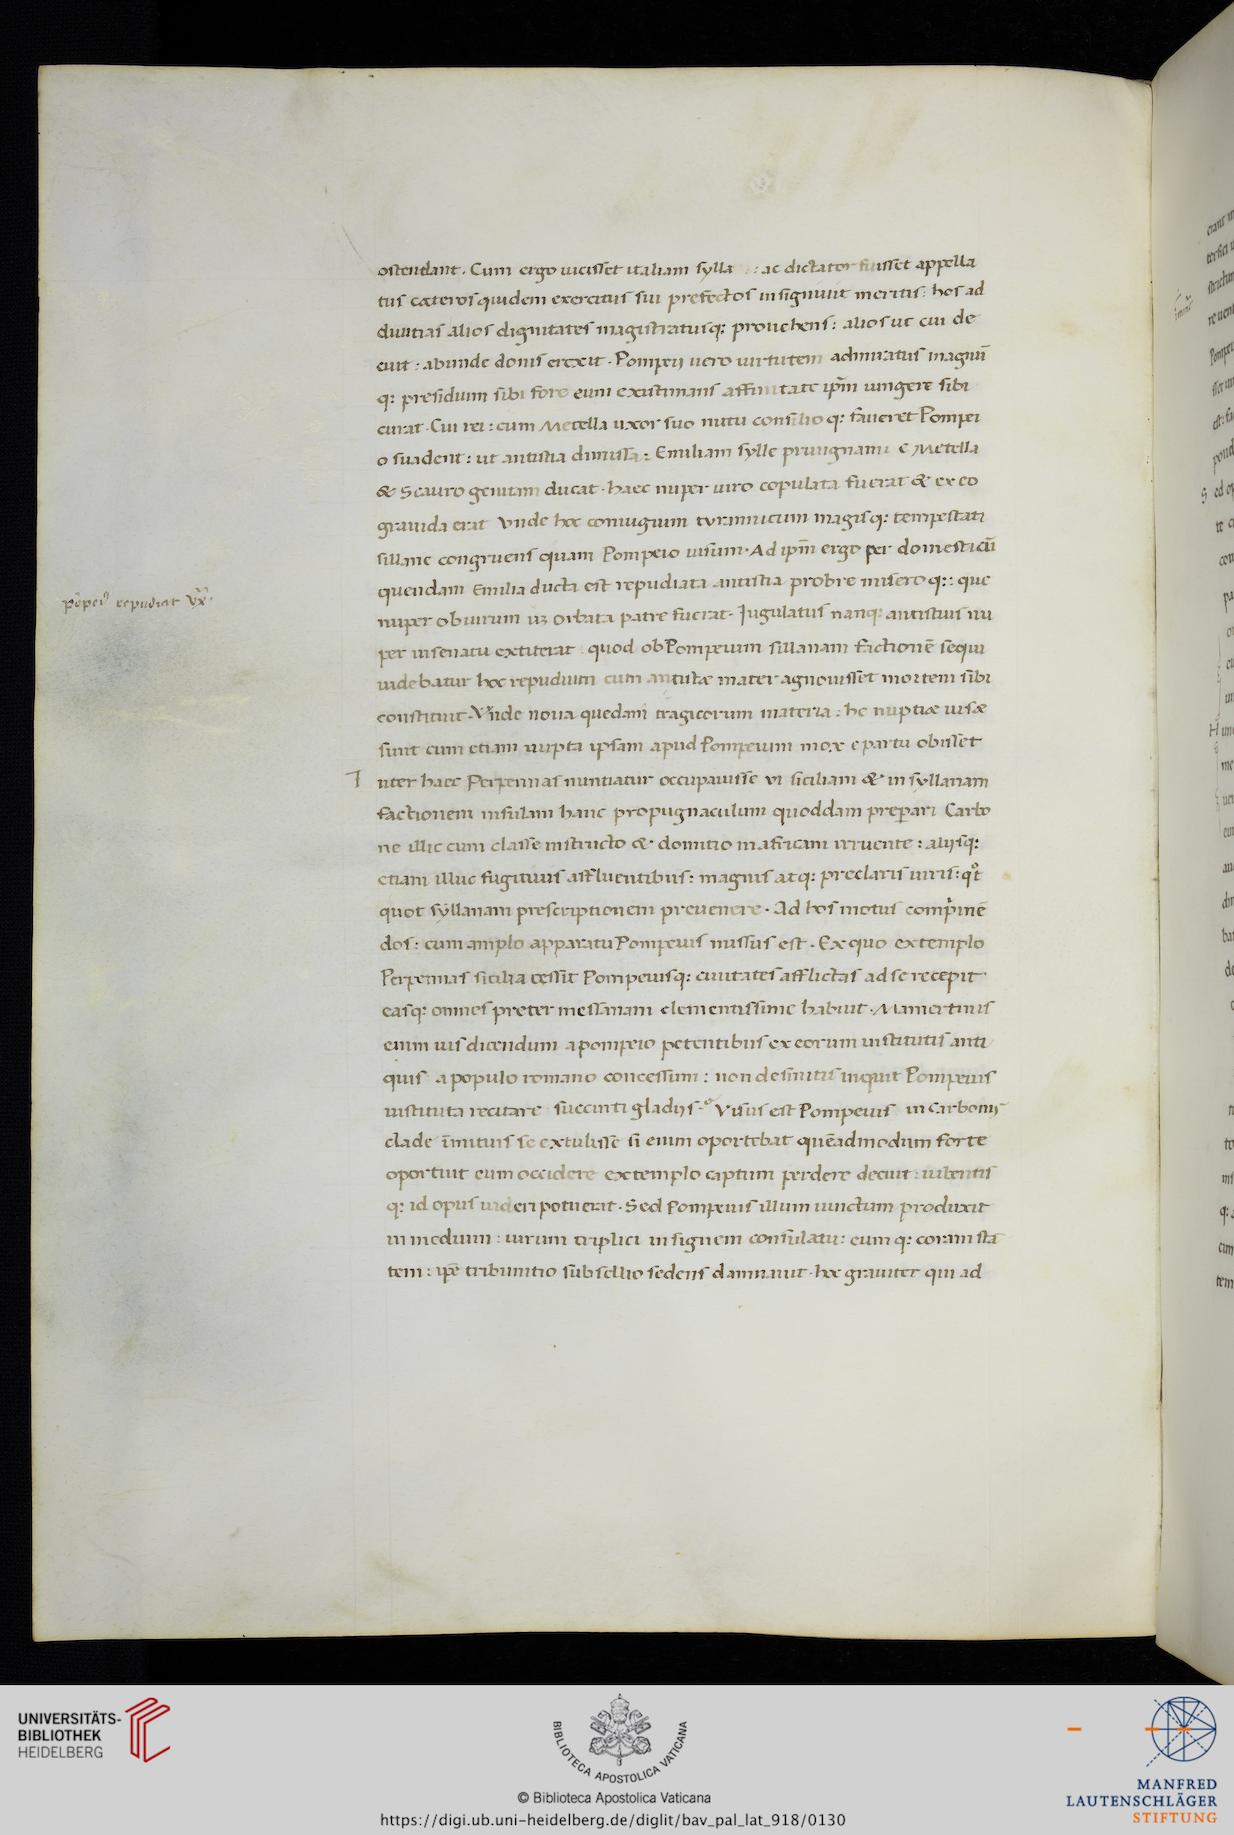 ostendant. Cum ergo uicisset italiam sylla : ac dictator fuisset appella
tus cæteros quidem exercitus sui prefectos insigniuit meritis: hos ad
diuitias alios dignitates magistratusq: prouehens: alios ut cui de
cuit: abunde donis erexit. Pompeij uero uirtutem admiratus magnū
q: presidium sibi fore eum existimans affinitate ip̄m iungere sibi
curat. Cui rei: cum Metella uxor suo nutu consilio q: faueret Pompei
o suadent: ut antistia dimissa: Emiliam sylle priuignam e Metella
& Scauro genitam ducat. haec nuper uiro copulata fuerat & ex eo
grauida erat Vnde hoc coniugium tyrannicum magisq: tempestati
sillane congruens quam Pompeio uisum. Ad ip̄m ergo per domesticū
quendam Emilia ducta est repudiata antistia probre misero q:: que
nuper ob uirum uʒ orbata patre fuerat. Iugulatus nanq: antistius nu
per in senatu extiterat quod ob Pompeium sillanam factionē sequi
uidebatur hoc repudium cum antistæ mater agnouisset mortem sibi
constituit. Vnde noua quedam tragicorum materia: he nuptiæ uisæ
sunt cum etiam nupta ipsam apud Pompeium mox e partu obisset
I nter haec Perpennas nuntiatur occupauisse ui siciliam & in syllanam
factionem insulam hanc propugnaculum quoddam preparari Carbo
ne illic cum classe instructo & domitio in africam irruente: alijsq:
etiam illuc fugitiuis affluentibus: magnis atq: preclaris uiris: qͦt
quot syllanam prescriptionem preuenere. Ad hos motus comp̄rimē
dos: cum amplo apparatu Pompeius missus est. Ex quo extemplo
Perpennas sicilia cessit Pompeiusq: ciuitates afflictas ad se recepit
easq: omnes preter messanam clementissime habuit. Mamertinis
enim uis dicendum a pompeio petentibus ex eorum institutis anti
quis a populo romano concessum: non desinitis inquit Pompeius
instituta recitare succinti gladijs.ͦ Visus est Pompeius in carbonis
clade īmitius se extulisse si enim oportebat quēadmodum forte
oportuit eum occidere extemplo captum perdere decuit: iubentis
q: id opus uideri potuerat. Sed Pompeius illum uinctum produxit
in medium: uirum triplici insignem consulatu: eum q: coram stā
tem: ip̄e tribunitio subsellio sedens damnauit. hoc grauiter qui ad
po᷒peiꝰ repudiat vx̄.
UNIVERSITÄTS-
BIBLIOTHEK
HEIDELBERG
BIBLIOTECA APOSTOLICA VATICANA
© Biblioteca Apostolica Vaticana
https://digi.ub.uni-heidelberg.de/diglit/bav_pal_lat_918/0130
MANFRED
LAUTENSCHLÄGER
STIFTUNG